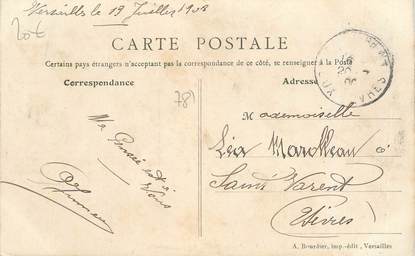 Versailles le 19 Juillet 1908
20€
CARTE POSTALE
Certains pays étrangers n'acceptant pas la correspondance de ce côté, se renseigner à la Poste
Correspondance
Adresse
781
Ma
Pensée est à
Vous
Mademoiselle
Léa Marolleau
Saint Varent
(Sèvres)
A. Bourdier, imp.-édit, Versailles